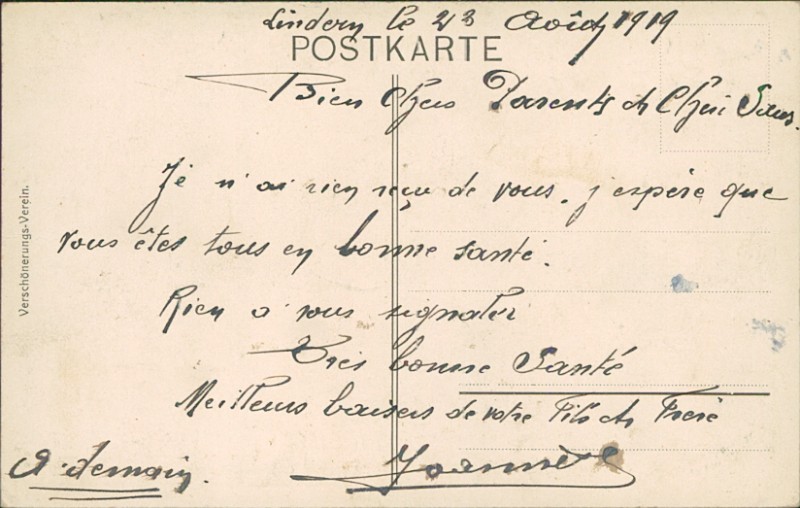 Lindern le 23 Août 1919
POSTKARTE
Bien Chers Parents et Chère Sœur.
Je n'ai rien reçu de vous. j'espère que
vous êtes tous en bonne santé.
Rien a vous signaler
Très bonne Santé
Meilleurs baisers de votre Fils et Frère
A demain.
Verschönerungs-Verein.